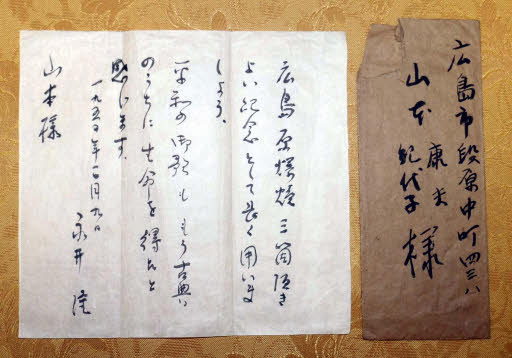 広島市段原中町四三八
山本 康夫
紀代子 様
広島原爆焼三箇頂き
よい記念として長く用いま
しよう、
平和の御歌ももう古典
のうちに生命を得たと
感じます。
一九五〇年 月九日
永井 隆
山本様